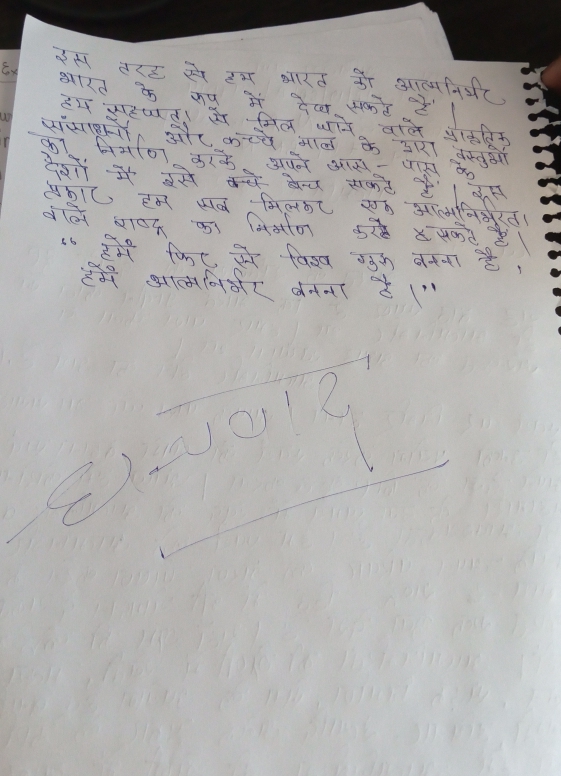 इस तरह से हम भारत को आत्मनिर्भर
भारत के रूप में देख सकते हैं।
हम सहजता से मिल जाने वाले प्राकृतिक
संसाधनों और कच्चे माल के द्वारा वस्तुओं
का निर्माण करके अपने आस-पास के
देशों में इसे बेच सकते हैं। इस
प्रकार हम सब मिलकर एक आत्मनिर्भरता
वाले राष्ट्र का निर्माण करके सकते हैं।
" हमें फिर से विश्व गुरु बनना है,
हमें आत्मनिर्भर बनना है।"
धन्यवाद